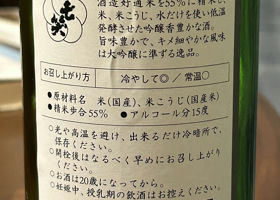 七笑
酒造好適米を55%に精米し、
米、米こうじ、水だけを使い低温
発酵させた大吟醸香豊かな酒。
旨味豊かで、キメ細やかな風味
は大吟醸に準ずる逸品。
お召し上がり方 冷やして◎/常温○
●原材料名 米(国産)、米こうじ(国産米)
●精米歩合55% ●アルコール分15度
○光や高温を避け、出来るだけ冷暗所で、
保存ください。
○開栓後はなるべく早めにお召し上がり
ください。
○お酒は20歳になってから。
○妊娠中、授乳期の飲酒はお控えください。